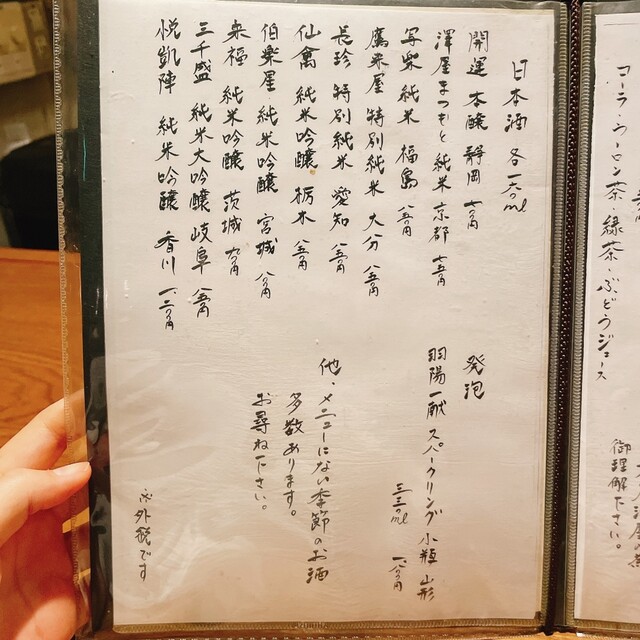 コーラ・ウーロン茶・緑茶・ぶどうジュース
御理解下さい。
日本酒 各一八〇ml
開運 本醸 静岡 七〇〇円
澤屋まつもと 純米 京都 七五〇円
写楽 純米 福島 八五〇円
鷹来屋 特別純米 大分 八五〇円
長珍 特別純米 愛知 八五〇円
仙禽 純米吟醸 栃木 八五〇円
伯楽星 純米吟醸 宮城 八〇〇円
来福 純米吟醸 茨城 九〇〇円
三千盛 純米大吟醸 岐阜 八五〇円
悦凱陣 純米吟醸 香川 一、二〇〇円
発泡
羽陽一献 スパークリング 小瓶 山形
三三〇ml 一八〇〇円
他・メニューにない季節のお酒
多数あります。
お尋ね下さい。
※外税です